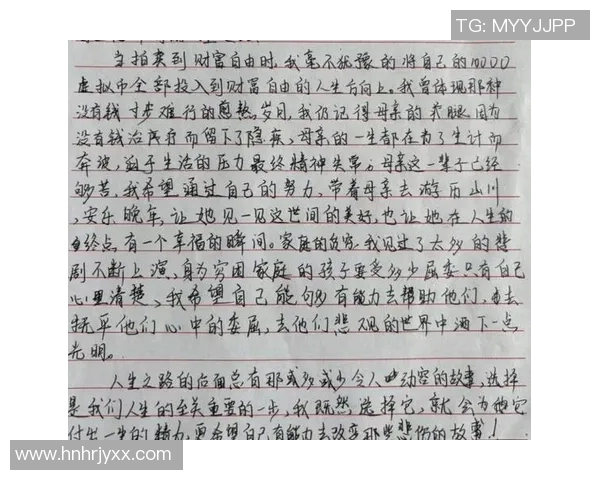 TG: MYYJJPP
当拍卖到财富自由时,我毫不犹豫的将自己的10000
虚拟币全部投入到财富自由的人生方向上。我曾体现那种
没有钱寸步难行的岁月,我仍记得母亲的腿因为
没有钱治疗而留下了隐疾,母亲的一生都在为了生计而
奔波,迫于生活的压力最终精神失常。母亲这一辈子已经
够苦,我希望通过自己的努力,带着母亲去游历山川
,安乐晚年,让她见一见这世间的美好,也让她在人生的
终点有一个幸福的瞬间。家庭的贫穷,我见过了太多的悲
剧不断上演,身为穷困家庭的孩子要受多少屈委只有自己
心里清楚,我希望自己能够有能力去帮助他们,去
抚平他们心中的委屈,去他们悲观的世界中洒下一点
光明。
人生之路的后面总有那或多或少令人动容的故事,选择
是我们人生的至关重要的一步,我既然选择它,就会为他它
付出一生的精力,更希望自己有能力去改变那些悲伤的故事!
www.hnhrjyxx.com